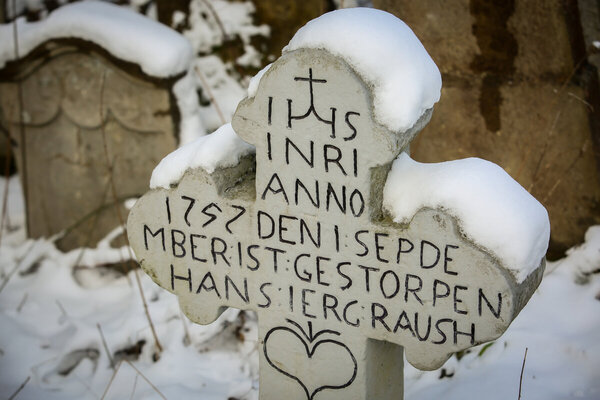 IHS
INRI
ANNO
1757 DEN 1 · SEPDE
MBER · IST · GESTORPEN
HANS · IERG · RAUSH